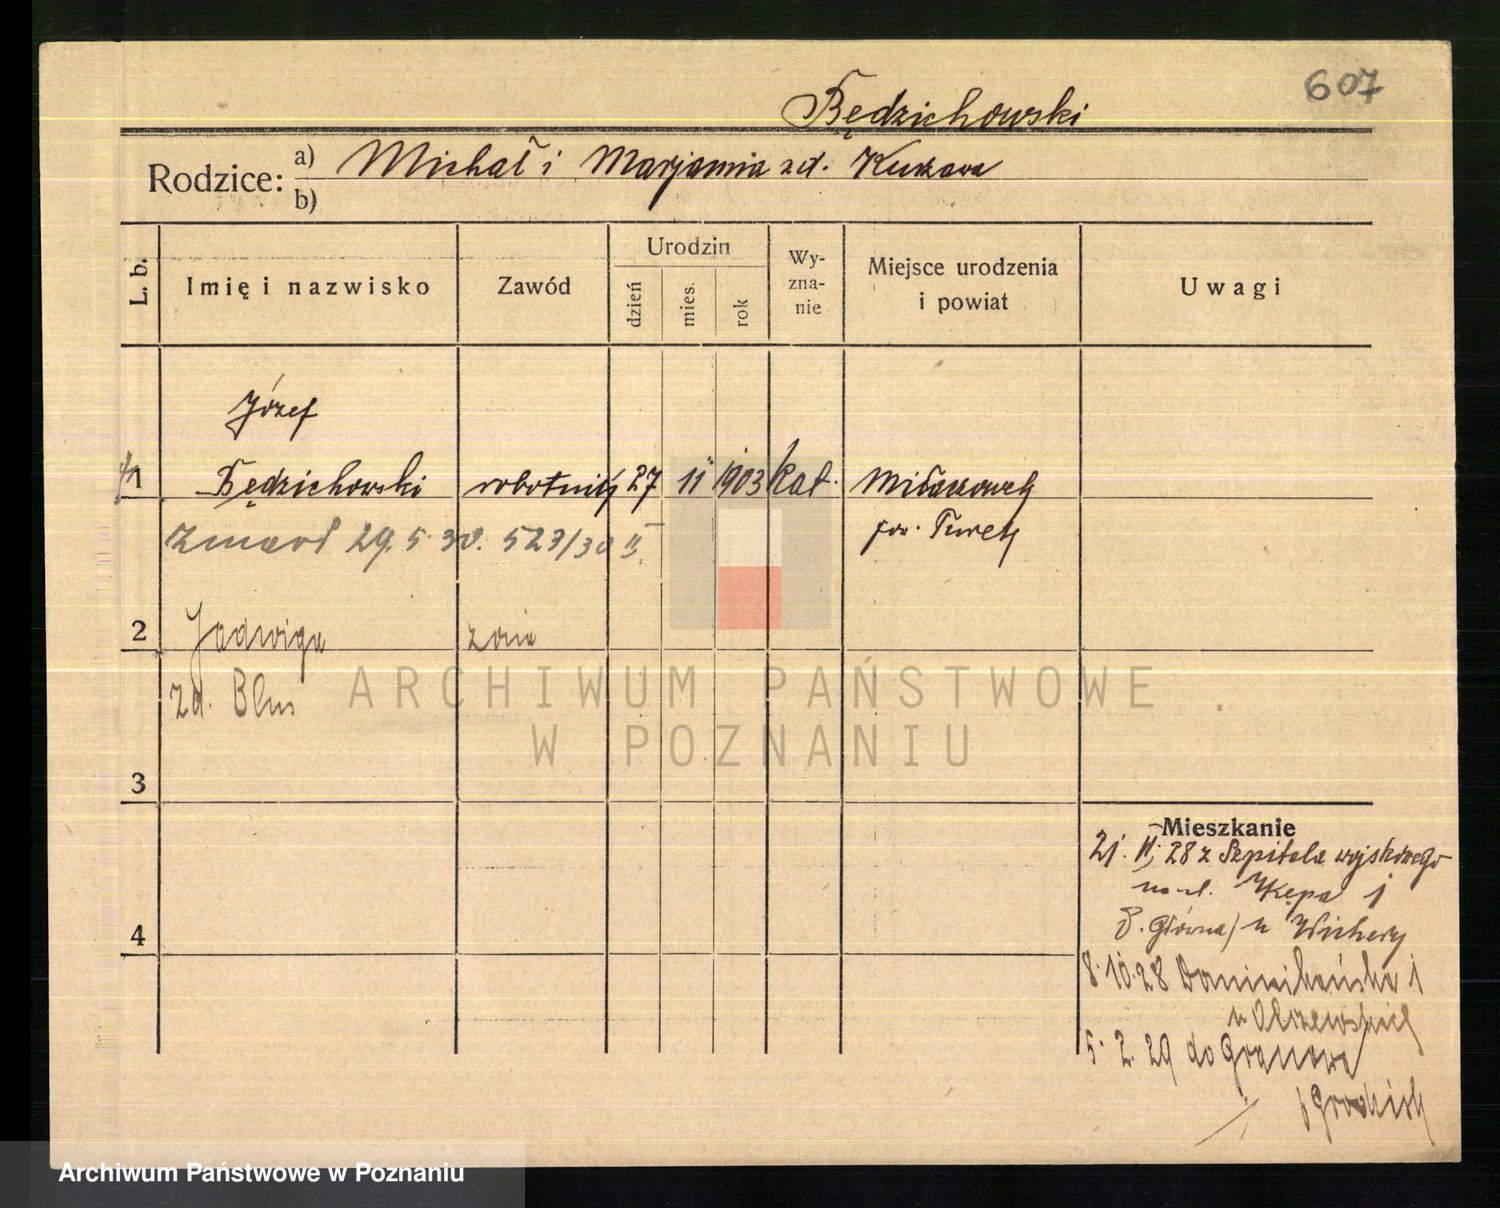 607
Będzichowski
Rodzice: a) Michał i Marjanna zd. Kurzawa
b)
L. b.
Imię i nazwisko
Zawód
Urodzin
dzień
mies.
rok
Wy-
zna-
nie
Miejsce urodzenia
i powiat
Uwagi
Józef
1 Będzichowski robotnik 27 11 1903 kat.
pow. Turek
Zmarł 29.5.30. 523/30 II
2 Jadwiga żona
zd.
3
4
Mieszkanie
28 z Szpitala wojskowego
Kępa 1
Główna) u Wichery
8.10.28 Dominikańska 1
u Olszewskich
5.2.29 do Granowa
p Grodzisk
ARCHIWUM PAŃSTWOWE
W POZNANIU
Archiwum Państwowe w Poznaniu